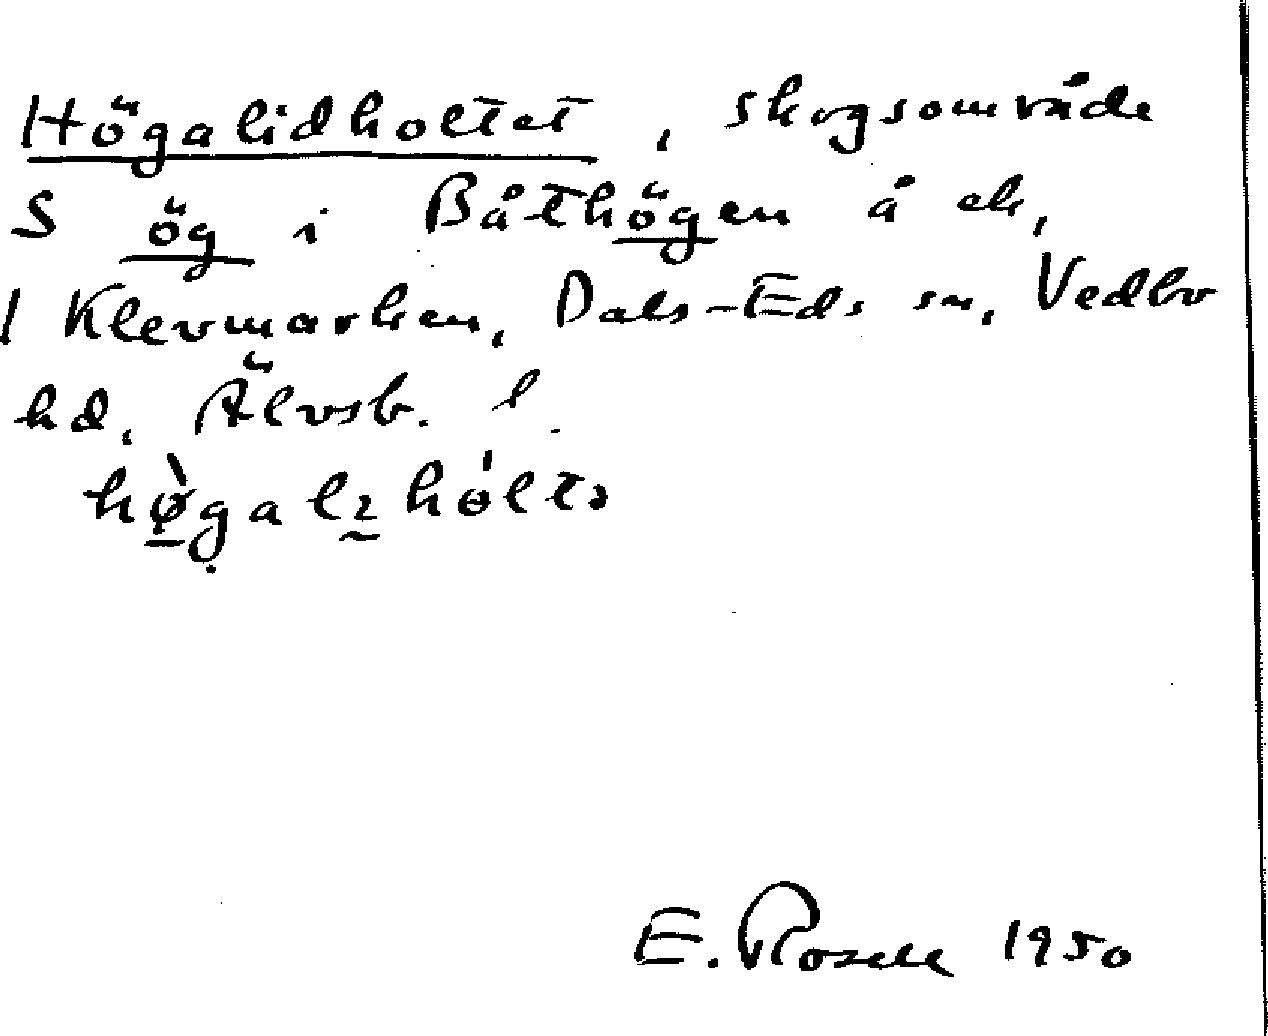 Högalidholtet, skogsområde
S ög i Båthögen å ek,
1 Klevmarken, Dals-Eds sn, Vedbo
hd, Älvsb. l
E. Rosell 1950